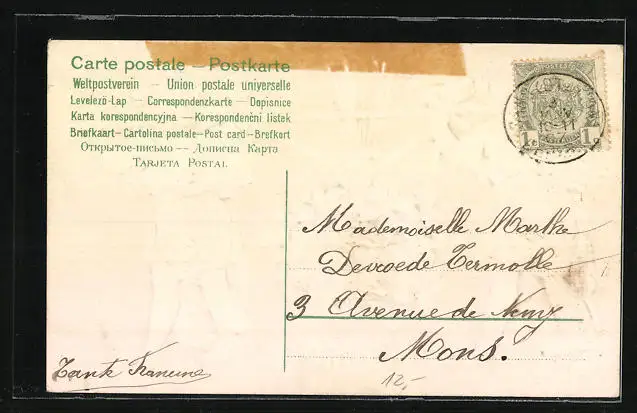 Carte postale — Postkarte
Weltpostverein — Union postale universelle
Levelező-Lap — Correspondenzkarte — Dopisnice
Karta korespondencyjna — Korespondenční listek
Briefkaart — Cartolina postale — Post card — Brefkort
Открытое-письмо — Дописна Карта
Tarjeta Postal
1 1
Mademoiselle Marthe
Devroede Termolle
3 Avenue de
Mons.
12,-